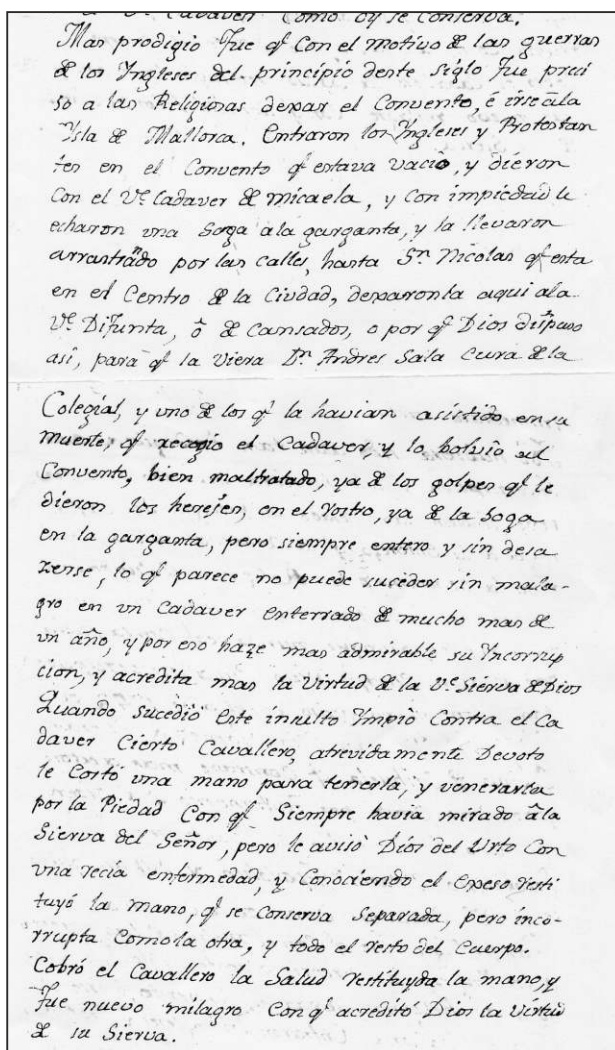 Vᵉ Cadaver Como oy se conserva.
Mas prodigio fue qᵉ Con el motivo de las guerras
de los Yngleses del principio deste siglo fue preci
so a las Religiosas dexar el Convento, é irse ála
Ysla de Mallorca. Entraron los Yngleses y Protestan
tes en el Convento qᵉ estava vacio, y dieron
Con el Vᵉ Cadaver de Micaela, y con impiedad le
echaron una soga ala garganta, y la llevaron
arrastrãdo por las calles, hasta Sⁿ Nicolas qᵉ esta
en el Centro de la Ciudad, dexaronla aqui ala
Vᵉ Difunta, ô de Cansados, o por qᵉ Dios dispuso
asi, para qᵉ la viera Dⁿ Andres Sala Cura de la
Colegial, y uno de los qᵉ la havian asistido en su
muerte, qᵉ recogio el Cadaver, y lo bolvio al
Convento, bien maltratado, ya de los golpes qᵉ le
dieron los herejes, en el rostro, ya de la soga
en la garganta, pero siempre entero y sin desa
zerse, lo qᵉ parece no puede suceder sin mala-
gro en vn Cadaver enterrado de mucho mas de
vn año, y por eso haze mas admirable su Yncorrup
cion, y acredita mas la Virtud de la Vᵉ Sierva de Dios
Quando sucedió este insulto Ympio Contra el Ca
daver Cierto Cavallero, atrevidamente Devoto
le Cortó una mano para tenerla, y venerarla
por la Piedad Con qᵉ Siempre havia mirado âla
Sierva del Señor, pero le avisó Dios del Urto Con
vna recia enfermedad, y Conociendo el Exeso resti
tuyó la mano, qᵉ se Conserva Separada, pero inco-
rrupta Como la otra, y todo el resto del Cuerpo.
Cobró el Cavallero la Salud restituyda la mano, y
fue nuevo milagro Con qᵉ acreditó Dios la Virtud
de su Sierva.